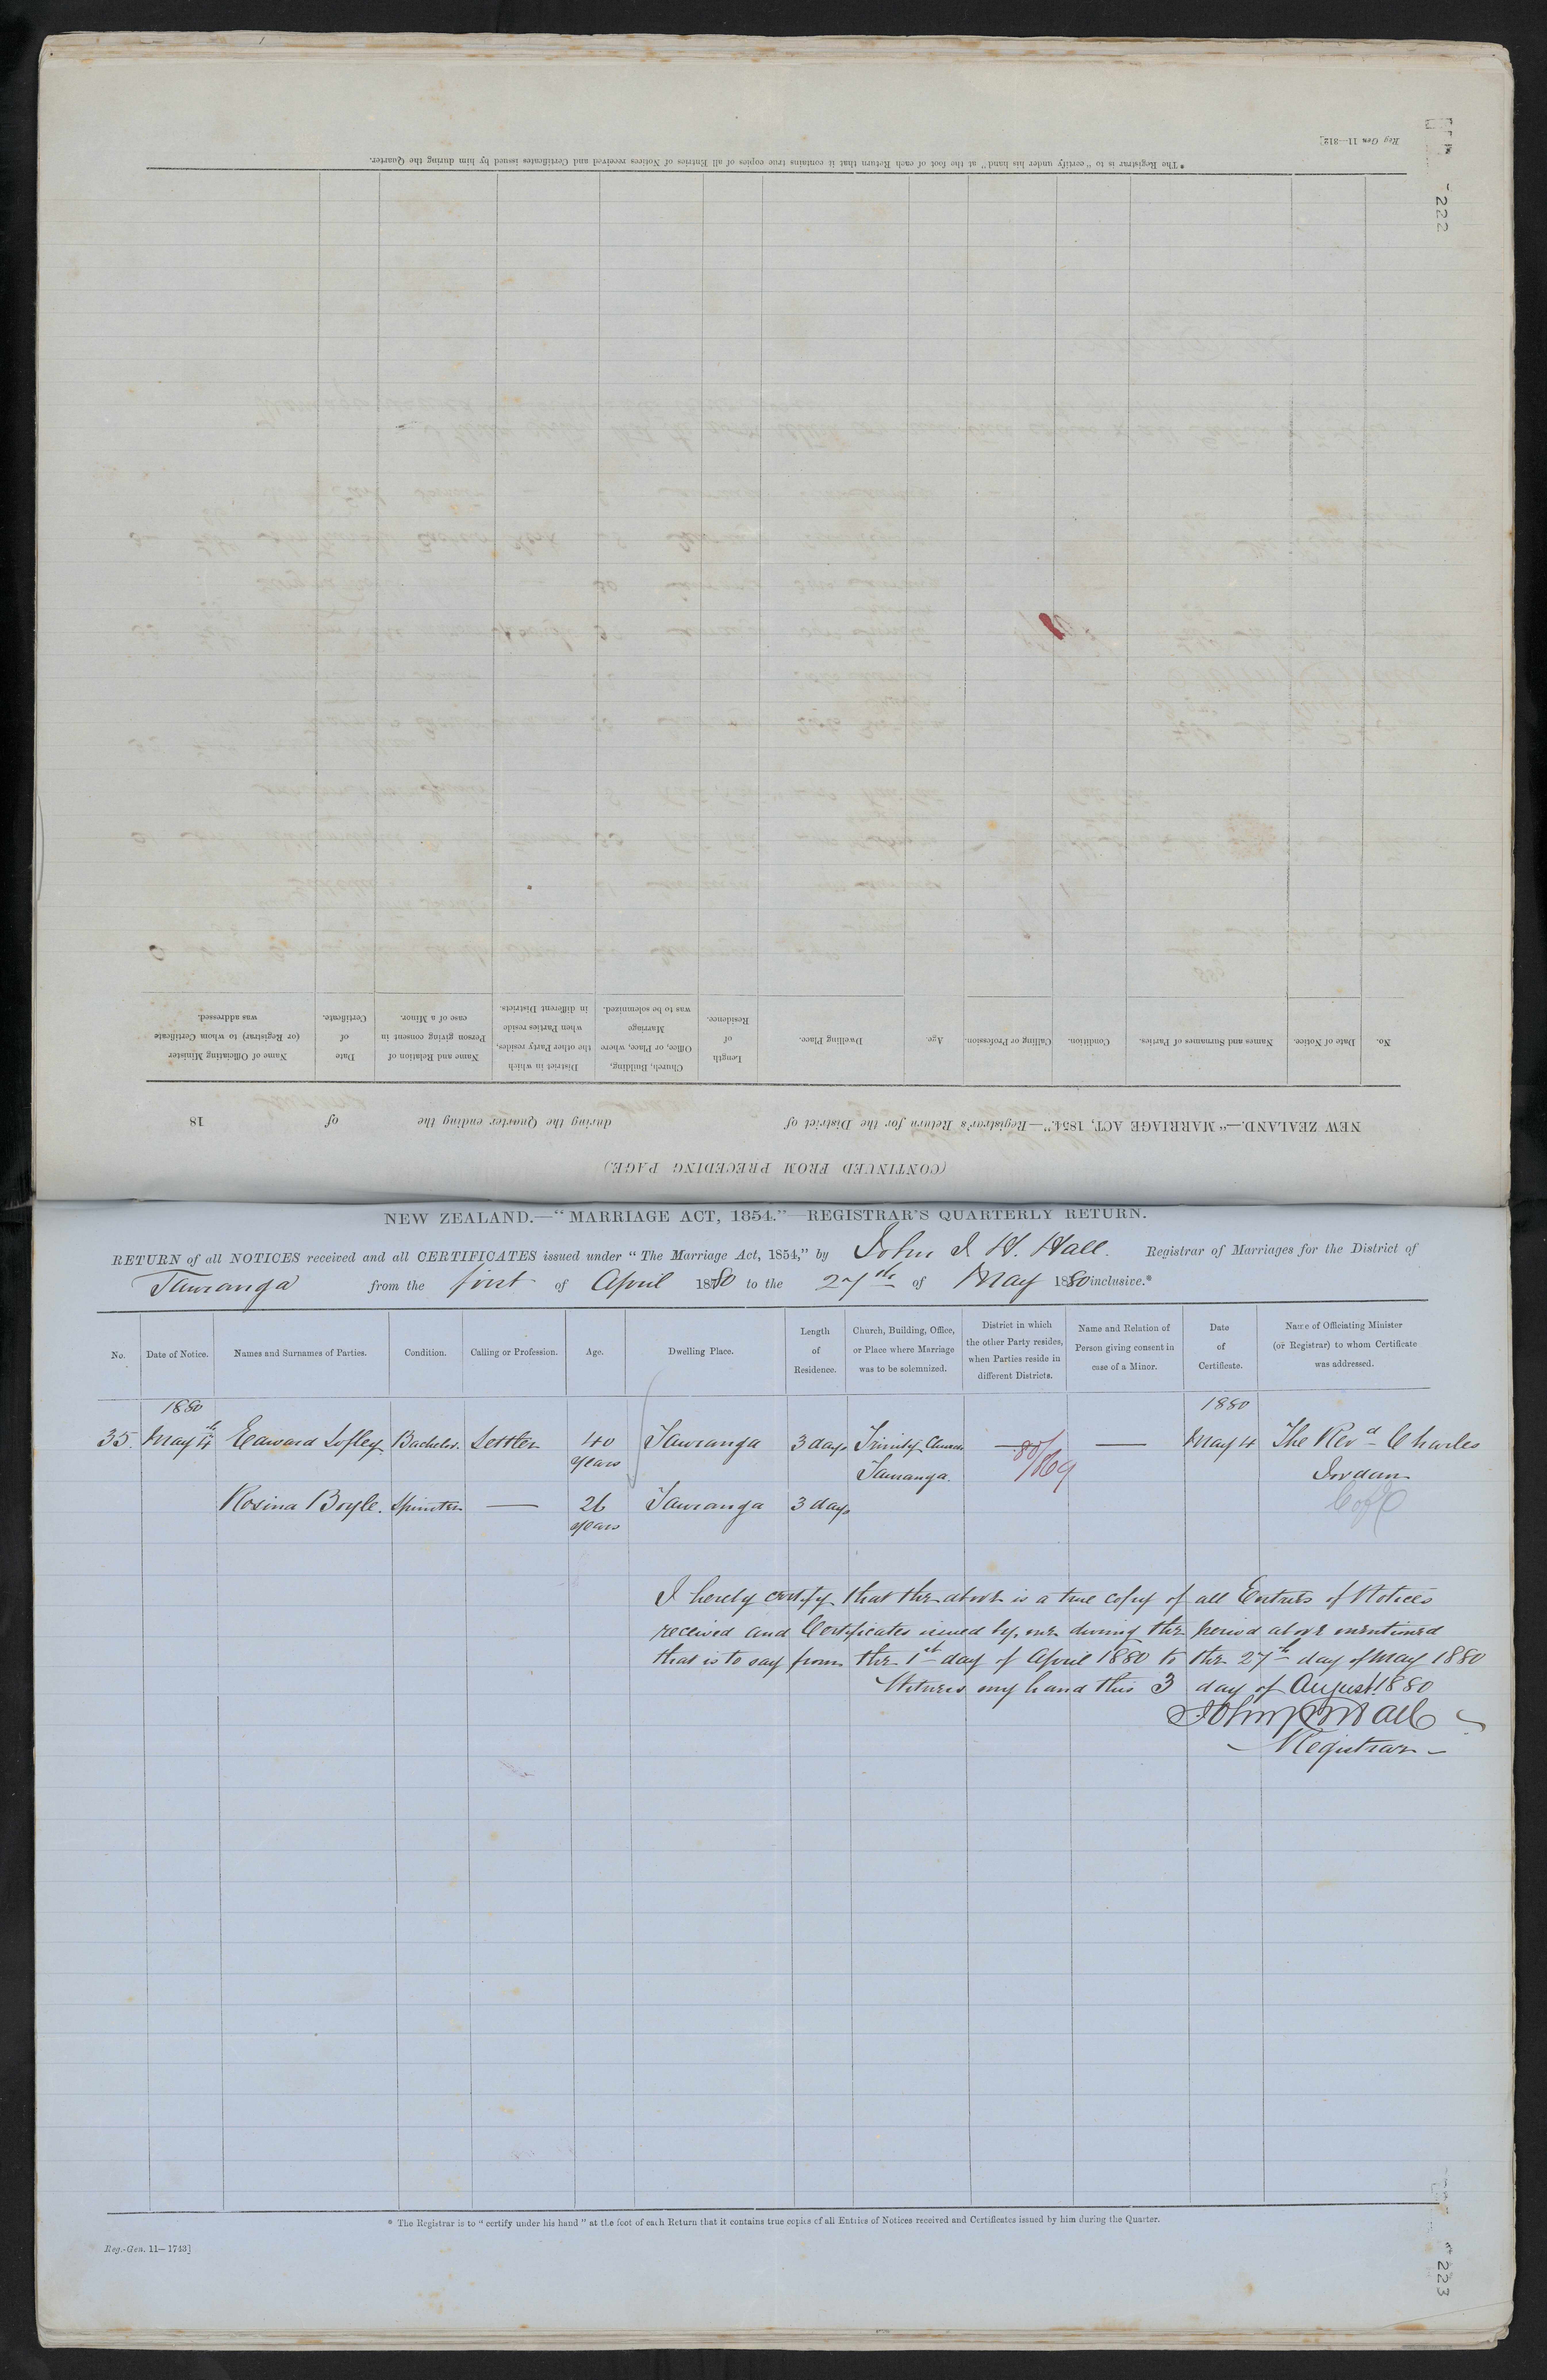 Reg Gen 11—312]
222
* The Registrar is to "certify under his hand" at the foot of each Return that it contains true copies of all Entries of Notices received and Certificates issued by him during the Quarter.
(CONTINUED FROM PRECEDING PAGE.)
NEW ZEALAND.—"MARRIAGE ACT, 1854."—Registrar's Return for the District of during the Quarter ending the of 18
No. Date of Notice. Names and Surnames of Parties. Condition. Calling or Profession. Age. Dwelling Place. Length of Residence. Church, Building, Office, or Place, where Marriage was to be solemnized. District in which the other Party resides, when Parties reside in different Districts. Name and Relation of Person giving consent in case of a Minor. Date of Certificate. Name of Officiating Minister (or Registrar) to whom Certificate was addressed.
NEW ZEALAND.—"MARRIAGE ACT, 1854."—REGISTRAR'S QUARTERLY RETURN.
RETURN of all NOTICES received and all CERTIFICATES issued under "The Marriage Act, 1854," by John J. H. Hall. Registrar of Marriages for the District of
Tauranga from the first of April 1880 to the 27th of May 1880 inclusive.*
No. Date of Notice. Names and Surnames of Parties. Condition. Calling or Profession. Age. Dwelling Place. Length of Residence. Church, Building, Office, or Place where Marriage was to be solemnized. District in which the other Party resides, when Parties reside in different Districts. Name and Relation of Person giving consent in case of a Minor. Date of Certificate. Name of Officiating Minister (or Registrar) to whom Certificate was addressed.
1880 1880
35. May 4th Edward Lofley Bachelor. Settler 40 Tauranga 3 days Trinity Church — — May 4 The Revd Charles
years Tauranga. 80/1169 Jordan
Rosina Boyle. Spinster — 26 Tauranga 3 days C of E
years
I hereby certify that the above is a true copy of all Entries of Notices
received and Certificates issued by me during the period above mentioned
that is to say from the 1st day of April 1880 to the 27th day of May 1880
Witness my hand this 3 day of August 1880
John J H Hall
Registrar
* The Registrar is to "certify under his hand" at the foot of each Return that it contains true copies of all Entries of Notices received and Certificates issued by him during the Quarter.
Reg.-Gen. 11—1743]
223